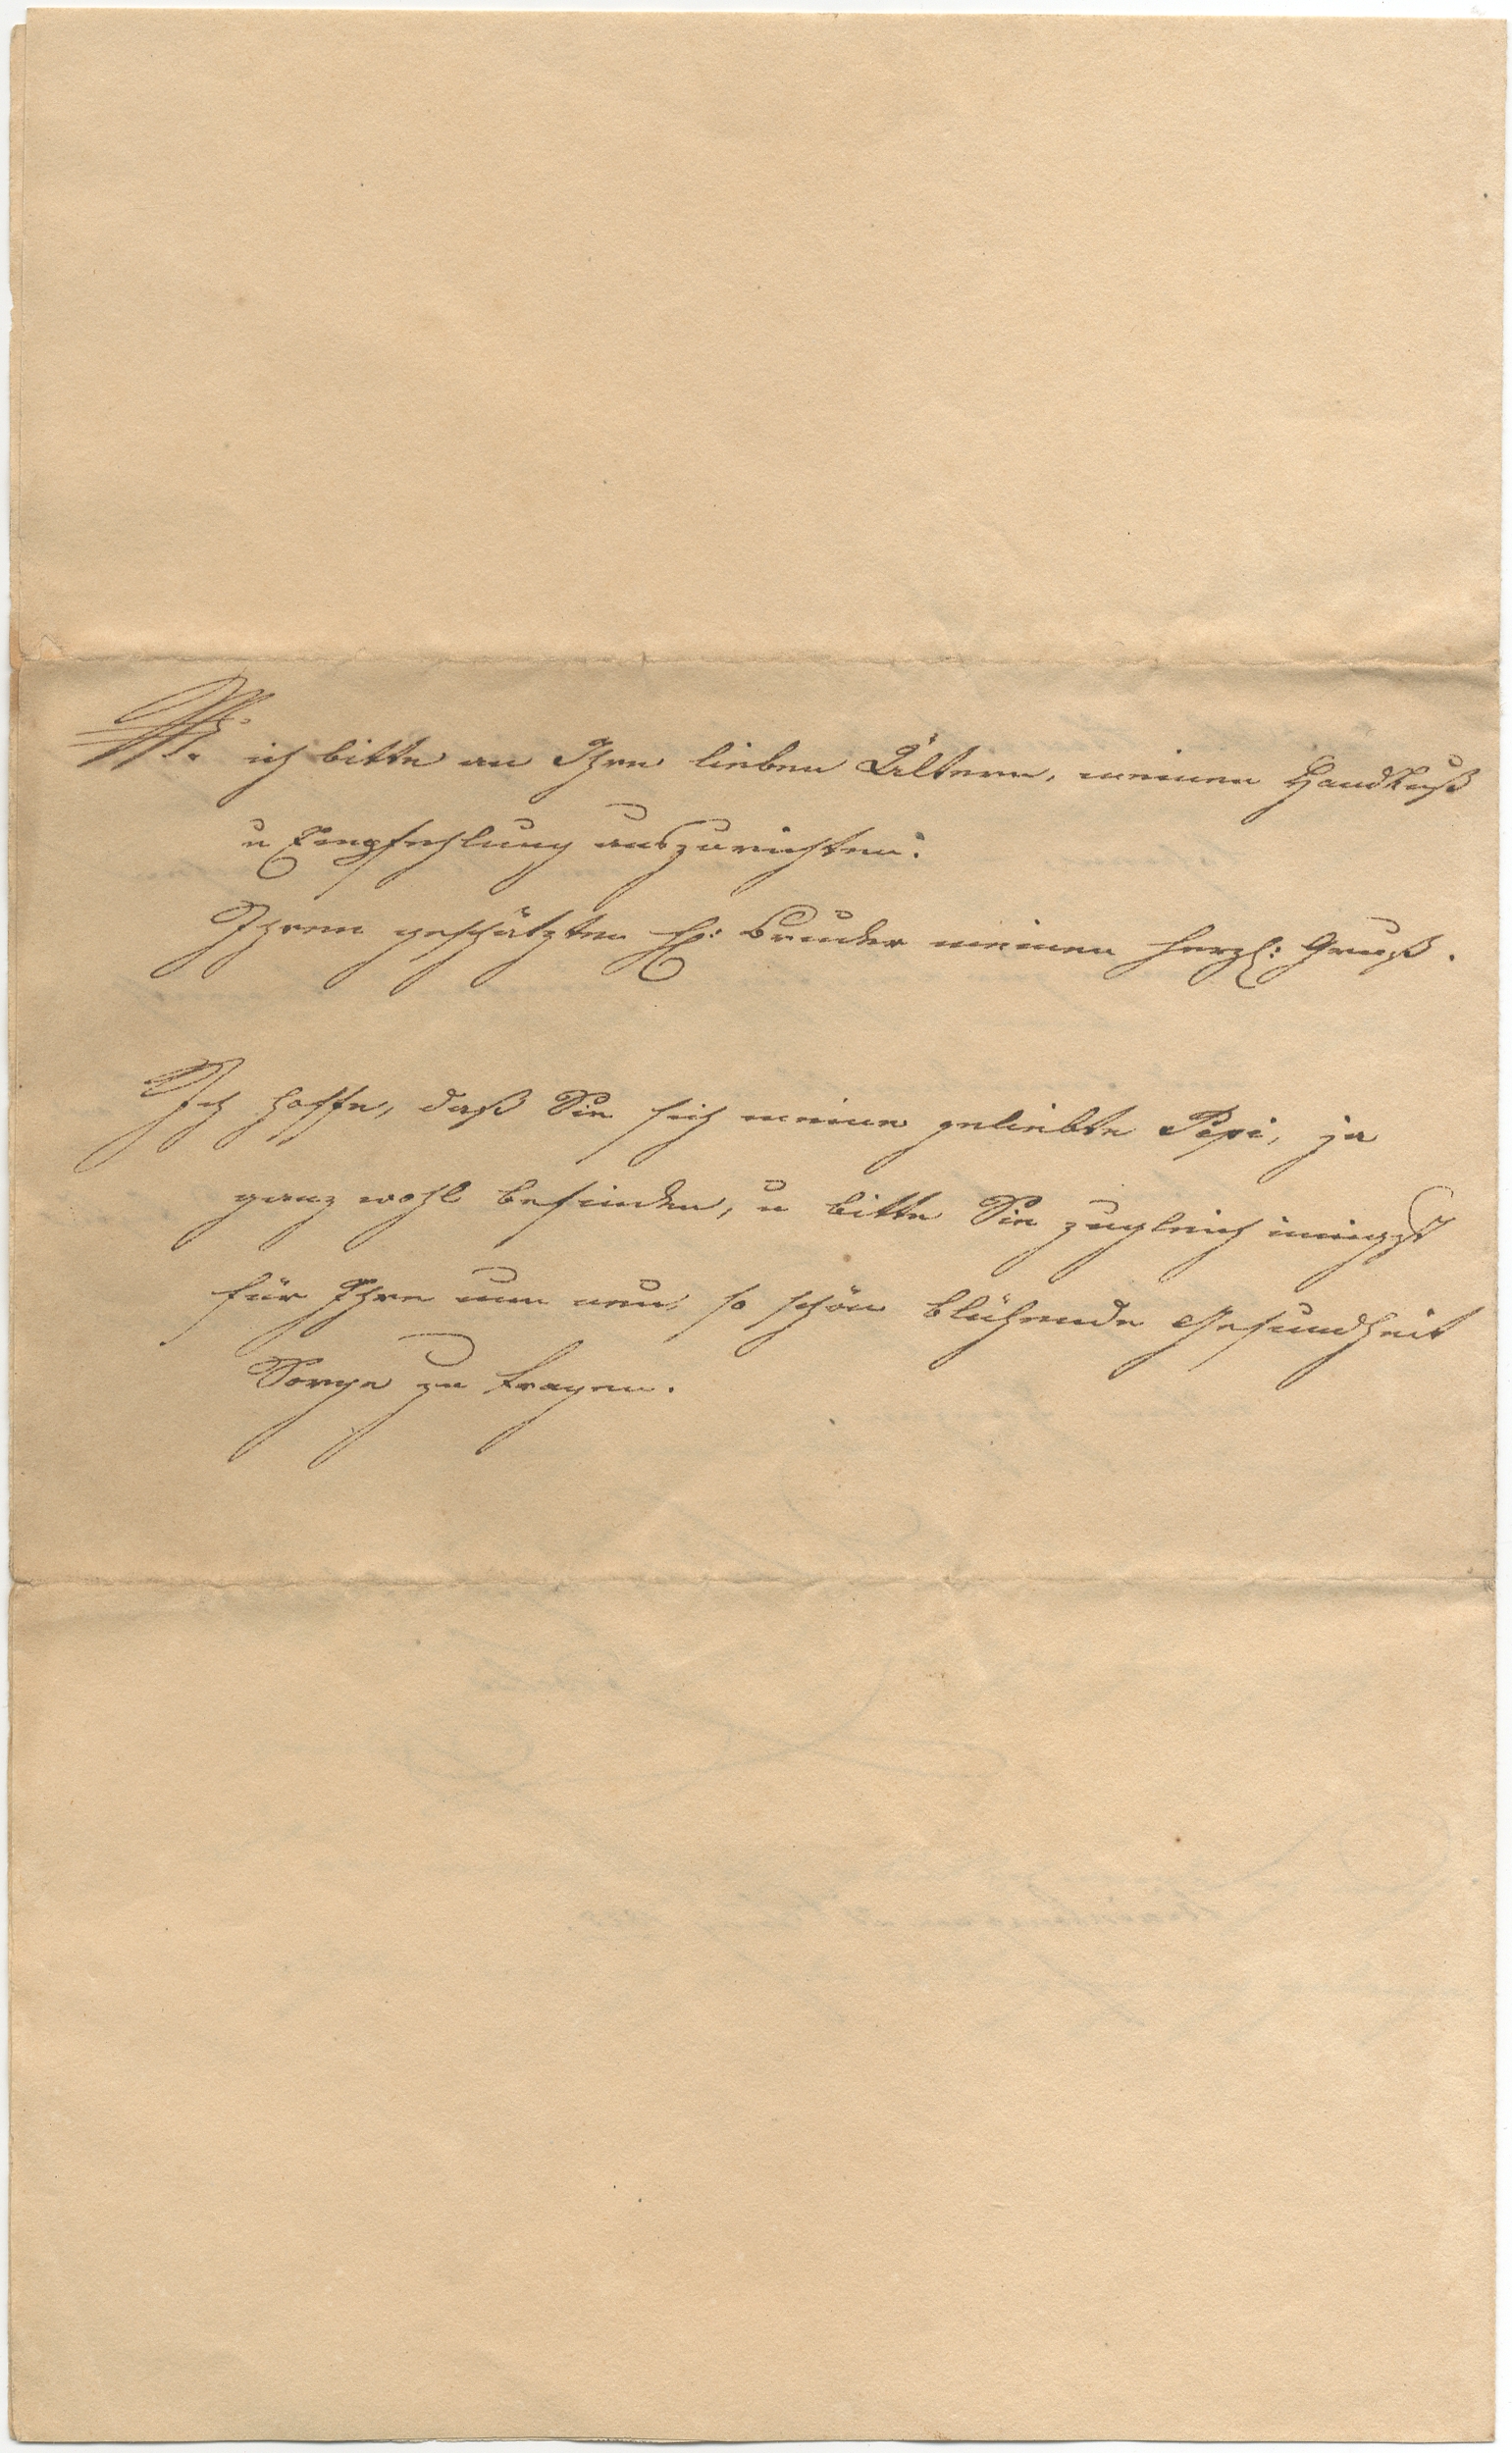 NB. ich bitte an Ihre lieben Ältern, meinen Handkuß
u Empfehlung auszurichten.
Ihrem geschätzten H: Bruder meinen herzl: Gruß.
Ich hoffe, daß Sie sich meine geliebte Pepi, ja
ganz wohl befinden, u bitte Sie zugleich innigst
für Ihre nun neu, so schön blühende Gesundheit
Sorge zu tragen.